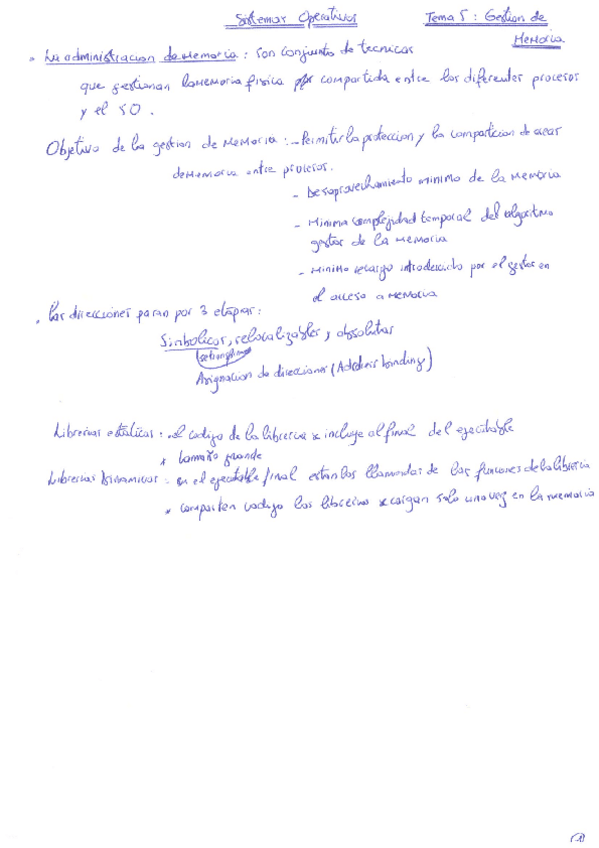 Sistemas Operativos Tema 5 : Gestion de
Memoria
La administracion de Memoria : son conjunto de tecnicas
que gestionan la Memoria fisica compartida entre los diferentes procesos
y el SO.
Objetivo de la gestion de Memoria : - Permitir la proteccion y la comparticion de areas
de Memoria entre procesos.
- Desaprovechamiento minimo de la Memoria
- Minima complejidad temporal del algoritmo
gestor de la Memoria
- Minimo recargo introducido por el gestor en
el acceso a Memoria
. las direcciones pasan por 3 etapas :
Simbolicas, relocalizables, y absolutas
Asignacion de direcciones (Address banding)
Librerias estaticas : el codigo de la libreria se incluye al final del ejecutable
* tamaño grande
Librerias Dinamicas : en el ejecutable final estan las llamadas de las funciones de la libreria
* comparten codigo las librerias se cargan solo una vez en la memoria